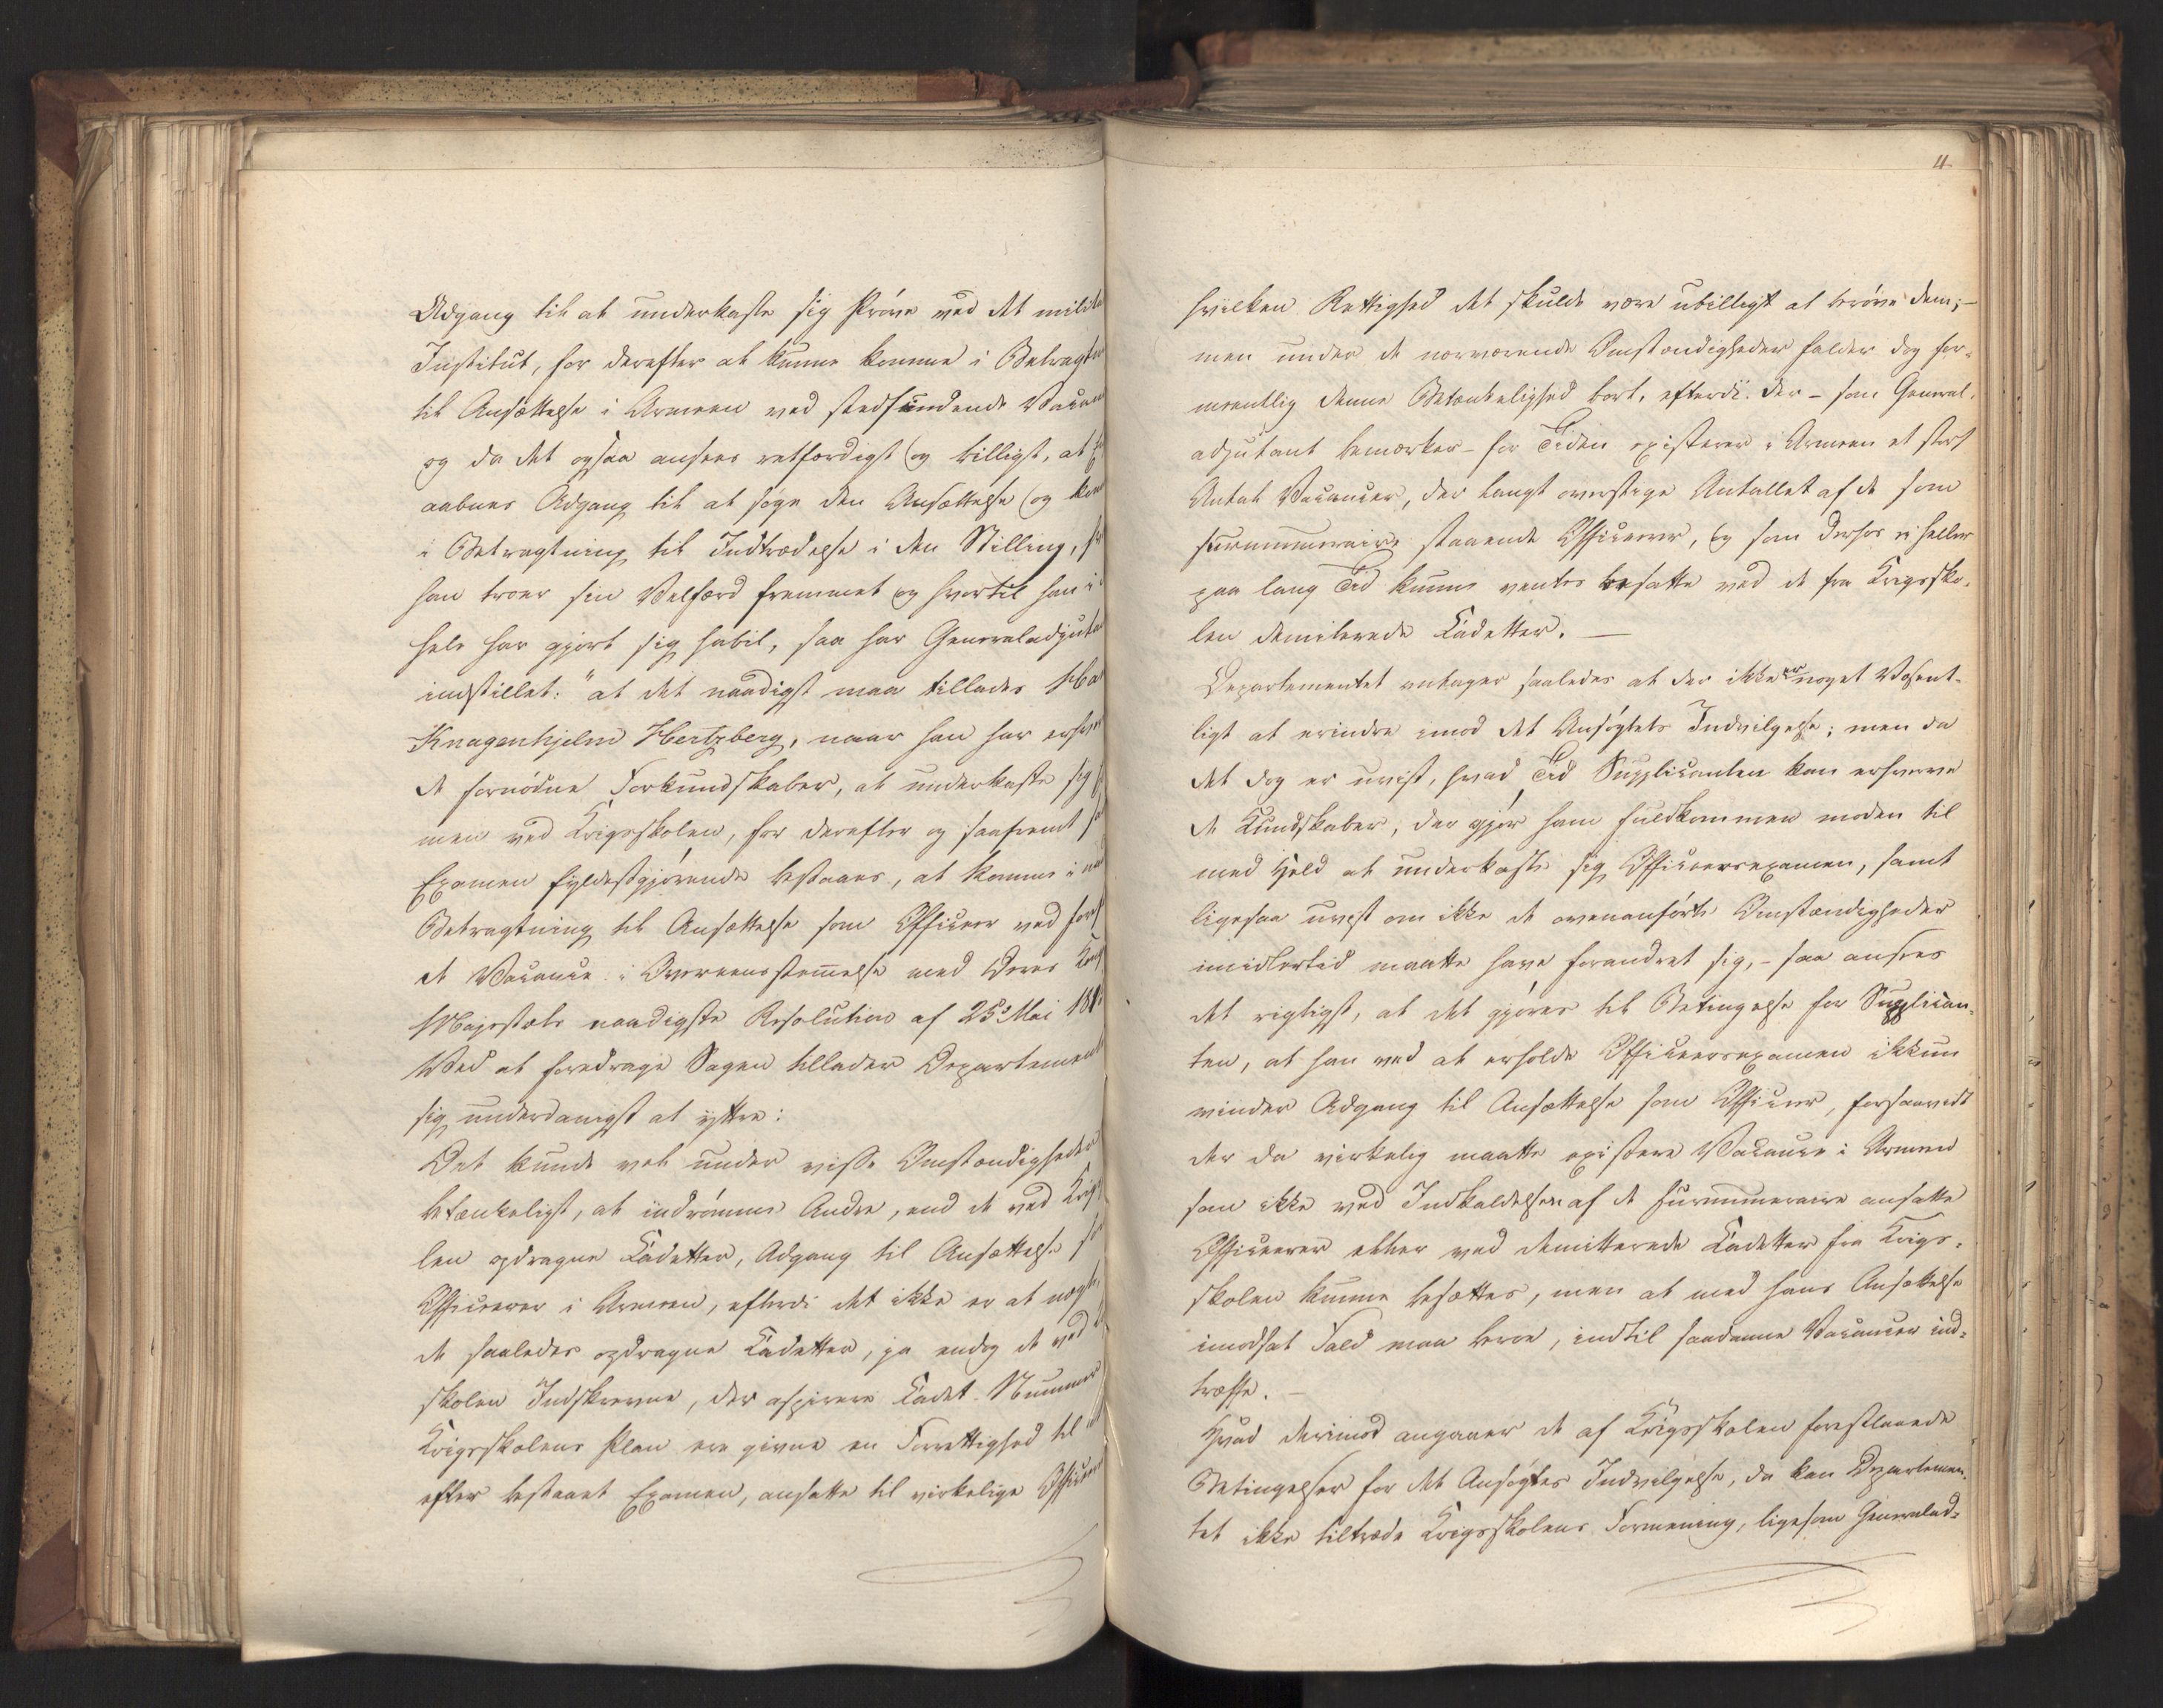 Adgang til at underkaste sig Prøve ved det milita
Institut, for derefter at kunne komme i Betragtn
til Ansættelse i Armeen ved stedfindende Vacan
og da det ogsaa ansees retfærdigt og billigt, at
aabnes Adgang til at søge den Ansættelse og kom
i Betragtning til Indtrædelse i den Stilling,
han troer sin Velfærd fremmet og hvortil han i
hele har gjort sig habil, saa har Generaladjuta
indstillet: "at det naadigst maa tillades
Knagenhjelm Hertzberg, naar han har erhver
de fornødne Forkundskaber, at underkaste sig
men ved Krigsskolen, for derefter og saafremt
Examen fyldestgjørende bestaaes, at komme i
Betragtning til Ansættelse som Officeer ved
de Vacance i Overeensstemmelse med Deres Kong
Majestæts naadigste Resolution af 25de Mai 18
Ved at foredrage Sagen tillader Departement
sig underdanigst at yttre:
Det kunde vel under visse Omstændigheder
betænkeligt, at indrømme Andre, end de ved Krigs
len opdragne Cadetter, Adgang til Ansættelse
Officerer i Armeen, efterdi det ikke er at nægte,
de saaledes opdragne Cadetter, ja endog de ved
skolen Indskrevne, der aspirere Cadet Nummer
Krigsskolens Plan ere givne en Forrettighed til
efter bestaaet Examen, ansatte til virkelige Officere
4
hvilken Rettighed det skulde være ubilligt at berøve dem;-
men under de nærværende Omstændigheder falder dog for-
mentlig denne Betænkelighed bort, efterdi der - som General-
adjutant bemærker - for Tiden existerer i Armeen et stort
Antal Vacancer, der langt overstige Antallet af de som
surnumeraire staaende Officerer, og som derfor ei heller
paa lang Tid kunne ventes besatte ved de fra Krigssko-
len demitterede Cadetter. -
Departementet antager saaledes at der ikke er noget Væsent-
ligt at erindre imod det Ansøgtes Indvilgelse; men da
det dog er uvist, hvad Tid Supplicanten kan erhverve
de Kundskaber, der gjør ham fuldkommen moden til
med Held at underkaste sig Officeersexamen, samt
ligesaa uvist om ikke de ovenanførte Omstændigheder
imidlertid maatte have forandret sig, - saa ansees
det rigtigst, at det gjøres til Betingelse for Supplican-
ten, at han ved at erholde Officeersexamen ikkun
vinder Adgang til Ansættelse som Officeer, forsaavidt
der da virkelig maatte existere Vacance i Armeen
som ikke ved Indkaldelsen af de surnumeraire ansatte
Officeerer eller ved demitterede Cadetter fra Krigs-
skolen kunne besættes, men at med hans Ansættelse
imodsat Fald maa beroe, indtil saadanne Vacancer ind-
træffe. -
Hvad derimod angaaer de af Krigsskolen foreslaaede
Betingelser for det Ansøgtes Indvilgelse, da kan Departemen-
tet ikke tiltræde Krigsskolens Formening, ligesom Generalad-